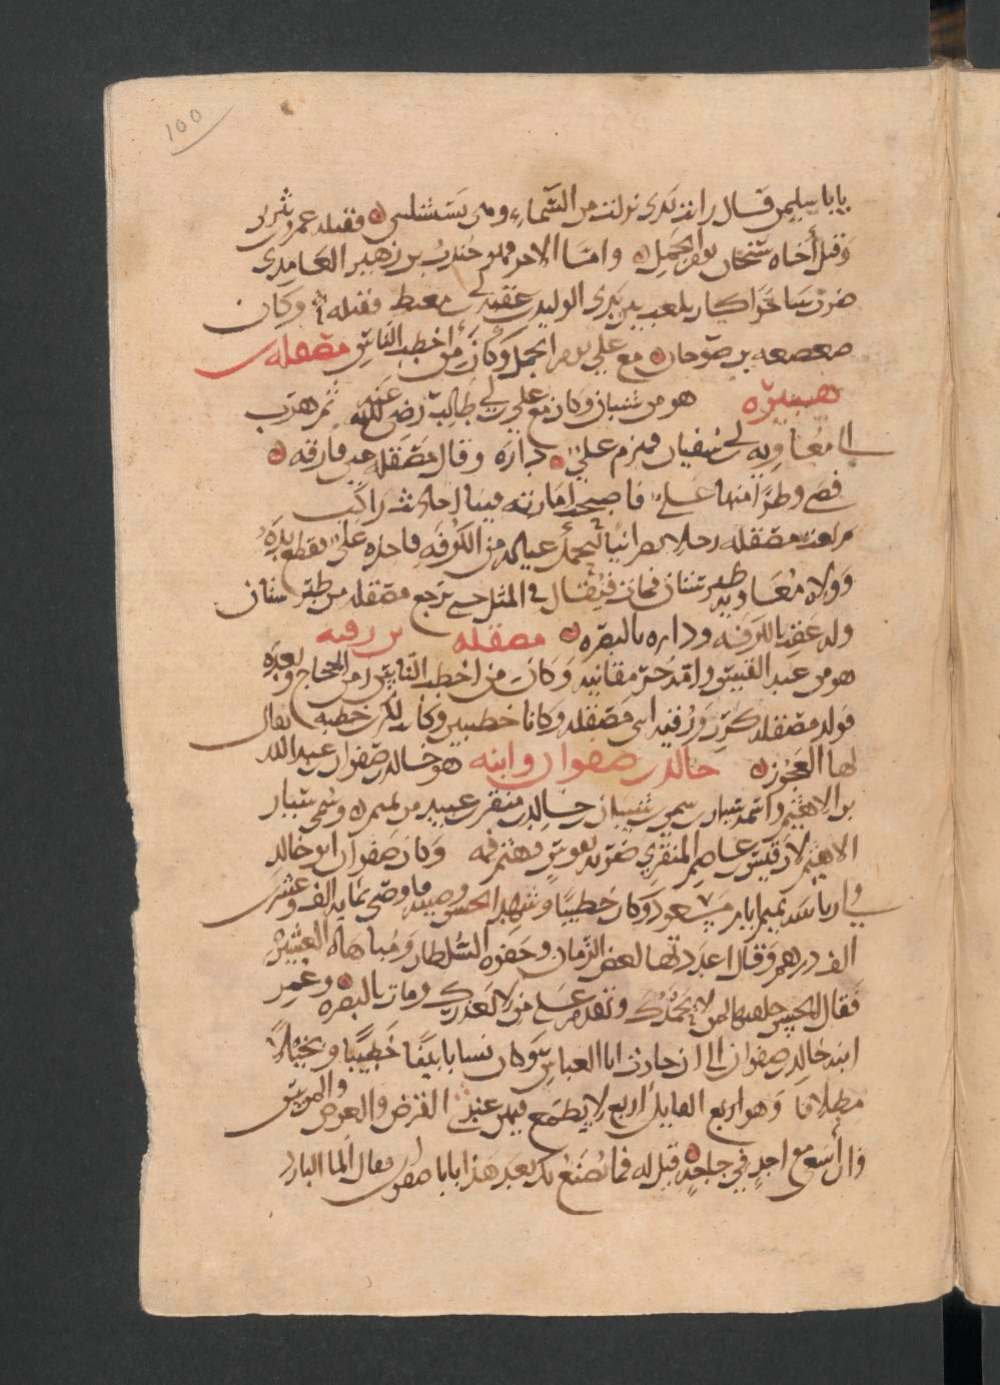 100
يابا سليمن فقال رايت يدى نزلت من السماء وهى تستشلنى فقتله عمرو بن يثربى
وقتل أخاه سيحان يوم الجمل وامّا الاخر فهو جندب بن زهير العامدي
ضرب ساحرا كان يلعب بين يدى الوليد بن عقبة بن ابى معيط فقتله وكان
صعصعه بن صوحان مع علي يوم الجمل وكان من أخطب الناس مصقله بن
هبيره هو من شيبان وكان مع علي بن ابي طالب رضى الله عنه ثم هرب
الى معاويه بن ابى سفين فهدم علي داره وقال مصقله حين فارقه
قضى وطرا منها علي فاصبحت امارته فينا احاديث راكب
ثم بعث مصقله رجلا نصرانيا ليحمل عياله من الكوفه فاخذه علي فقطع يده
وولاه معاويه طبرستان فمات فيقال في المثل حتى يرجع مصقله من طبرستان
وله عقب بالكوفه وداره بالبصره مصقله بن رقبه
هو من عبد القيس وكان من اخطب الناس زمن الحجاج وبعده
فولد مصقله كرز ورقبه ابنى مصقله وكانا خطيبين وكان لكرز خطبه يقال
لها العجوز خالد بن صفوان وابنه هو خالد بن صفوان بن عبد الله
بن الاهتم واسمه سنان بن سمى بن سنان بن خالد بن منقر بن عبيد من تميم وسمى سنان
الاهتم لان قيس بن عاصم المنقري ضربه بقوس فهتم فمه وكان صفوان ابو خالد
ولى رئاسه تميم ايام مسعود وكان خطيبا وشهد الحسن وصيته فاوصى بمايه الف وعشرين
الف درهم وقال اعددتها لعض الزمان وجفوه السلطان ومباهاه العشيره
فقال الحسن خلفتها لمن لا يحمدك وتقدم على من لا يعذرك ومات بالبصره وعمر
ابنه خالد بن صفوان الى ان حادث ابا العباس وكان نسابا بليغا خطيبا وبخيلا
مطلاقا وهو القايل اربع لا يطمع فيهن عندي القرض والعرض والهريس
وان أسعى مع احد في حاجه قيل له فما نصنع بك بعد هذا يابا صفوان فقال الما البارد